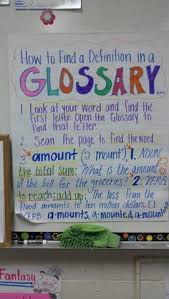 How to Find a Definition in a
GLOSSARY
1. Look at your word and find the
first letter. Open the Glossary
to find that letter.
2. Scan the page to find the word.
amount (ə mount) 1. NOUN
the total sum: What is the amount
of the bill for the groceries? 2. VERB
to reach; add up: The loss from the
flood amounts to ten million dollars.
VERB a·mounts, a·mounted, a·mount
Fantasy